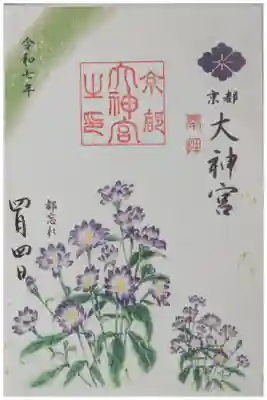 京都
大神宮
奉拝
京都
大神宮
之印
都忘れ
令和七年
四月四日